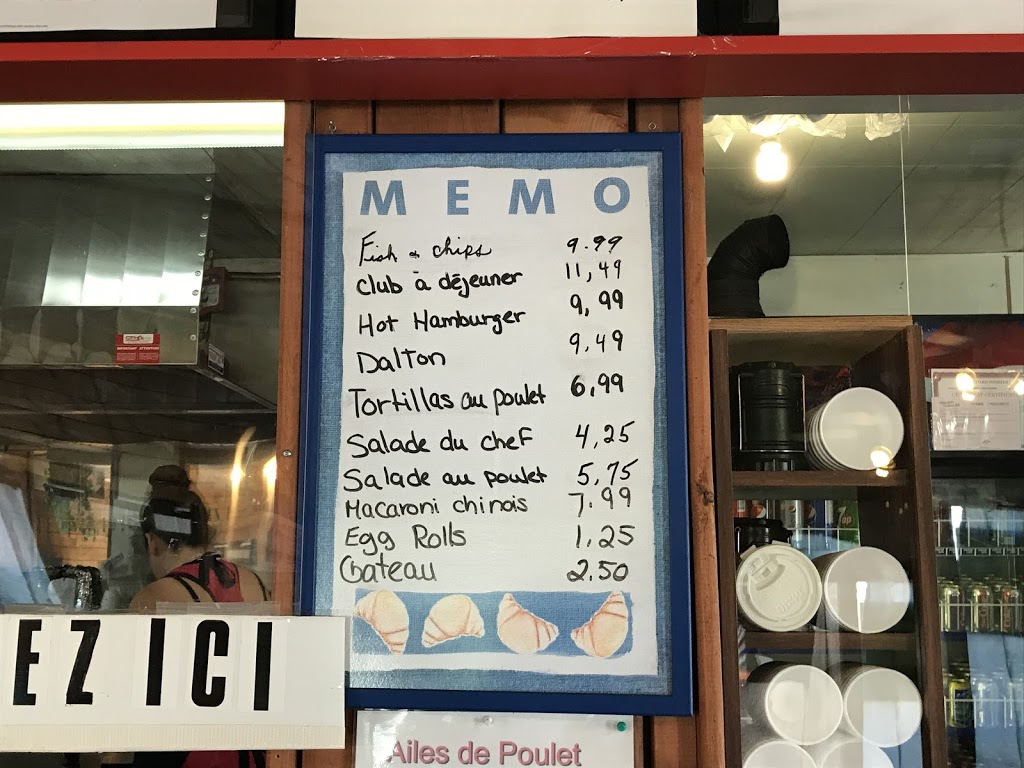 MEMO
Fish & chips 9.99
Club à déjeuner 11,49
Hot Hamburger 9,99
Dalton 9,49
Tortillas au poulet 6,99
Salade du chef 4,25
Salade au poulet 5,75
Macaroni chinois 7.99
Egg Rolls 1,25
Gateau 2.50
EZ ICI
Ailes de Poulet
7up